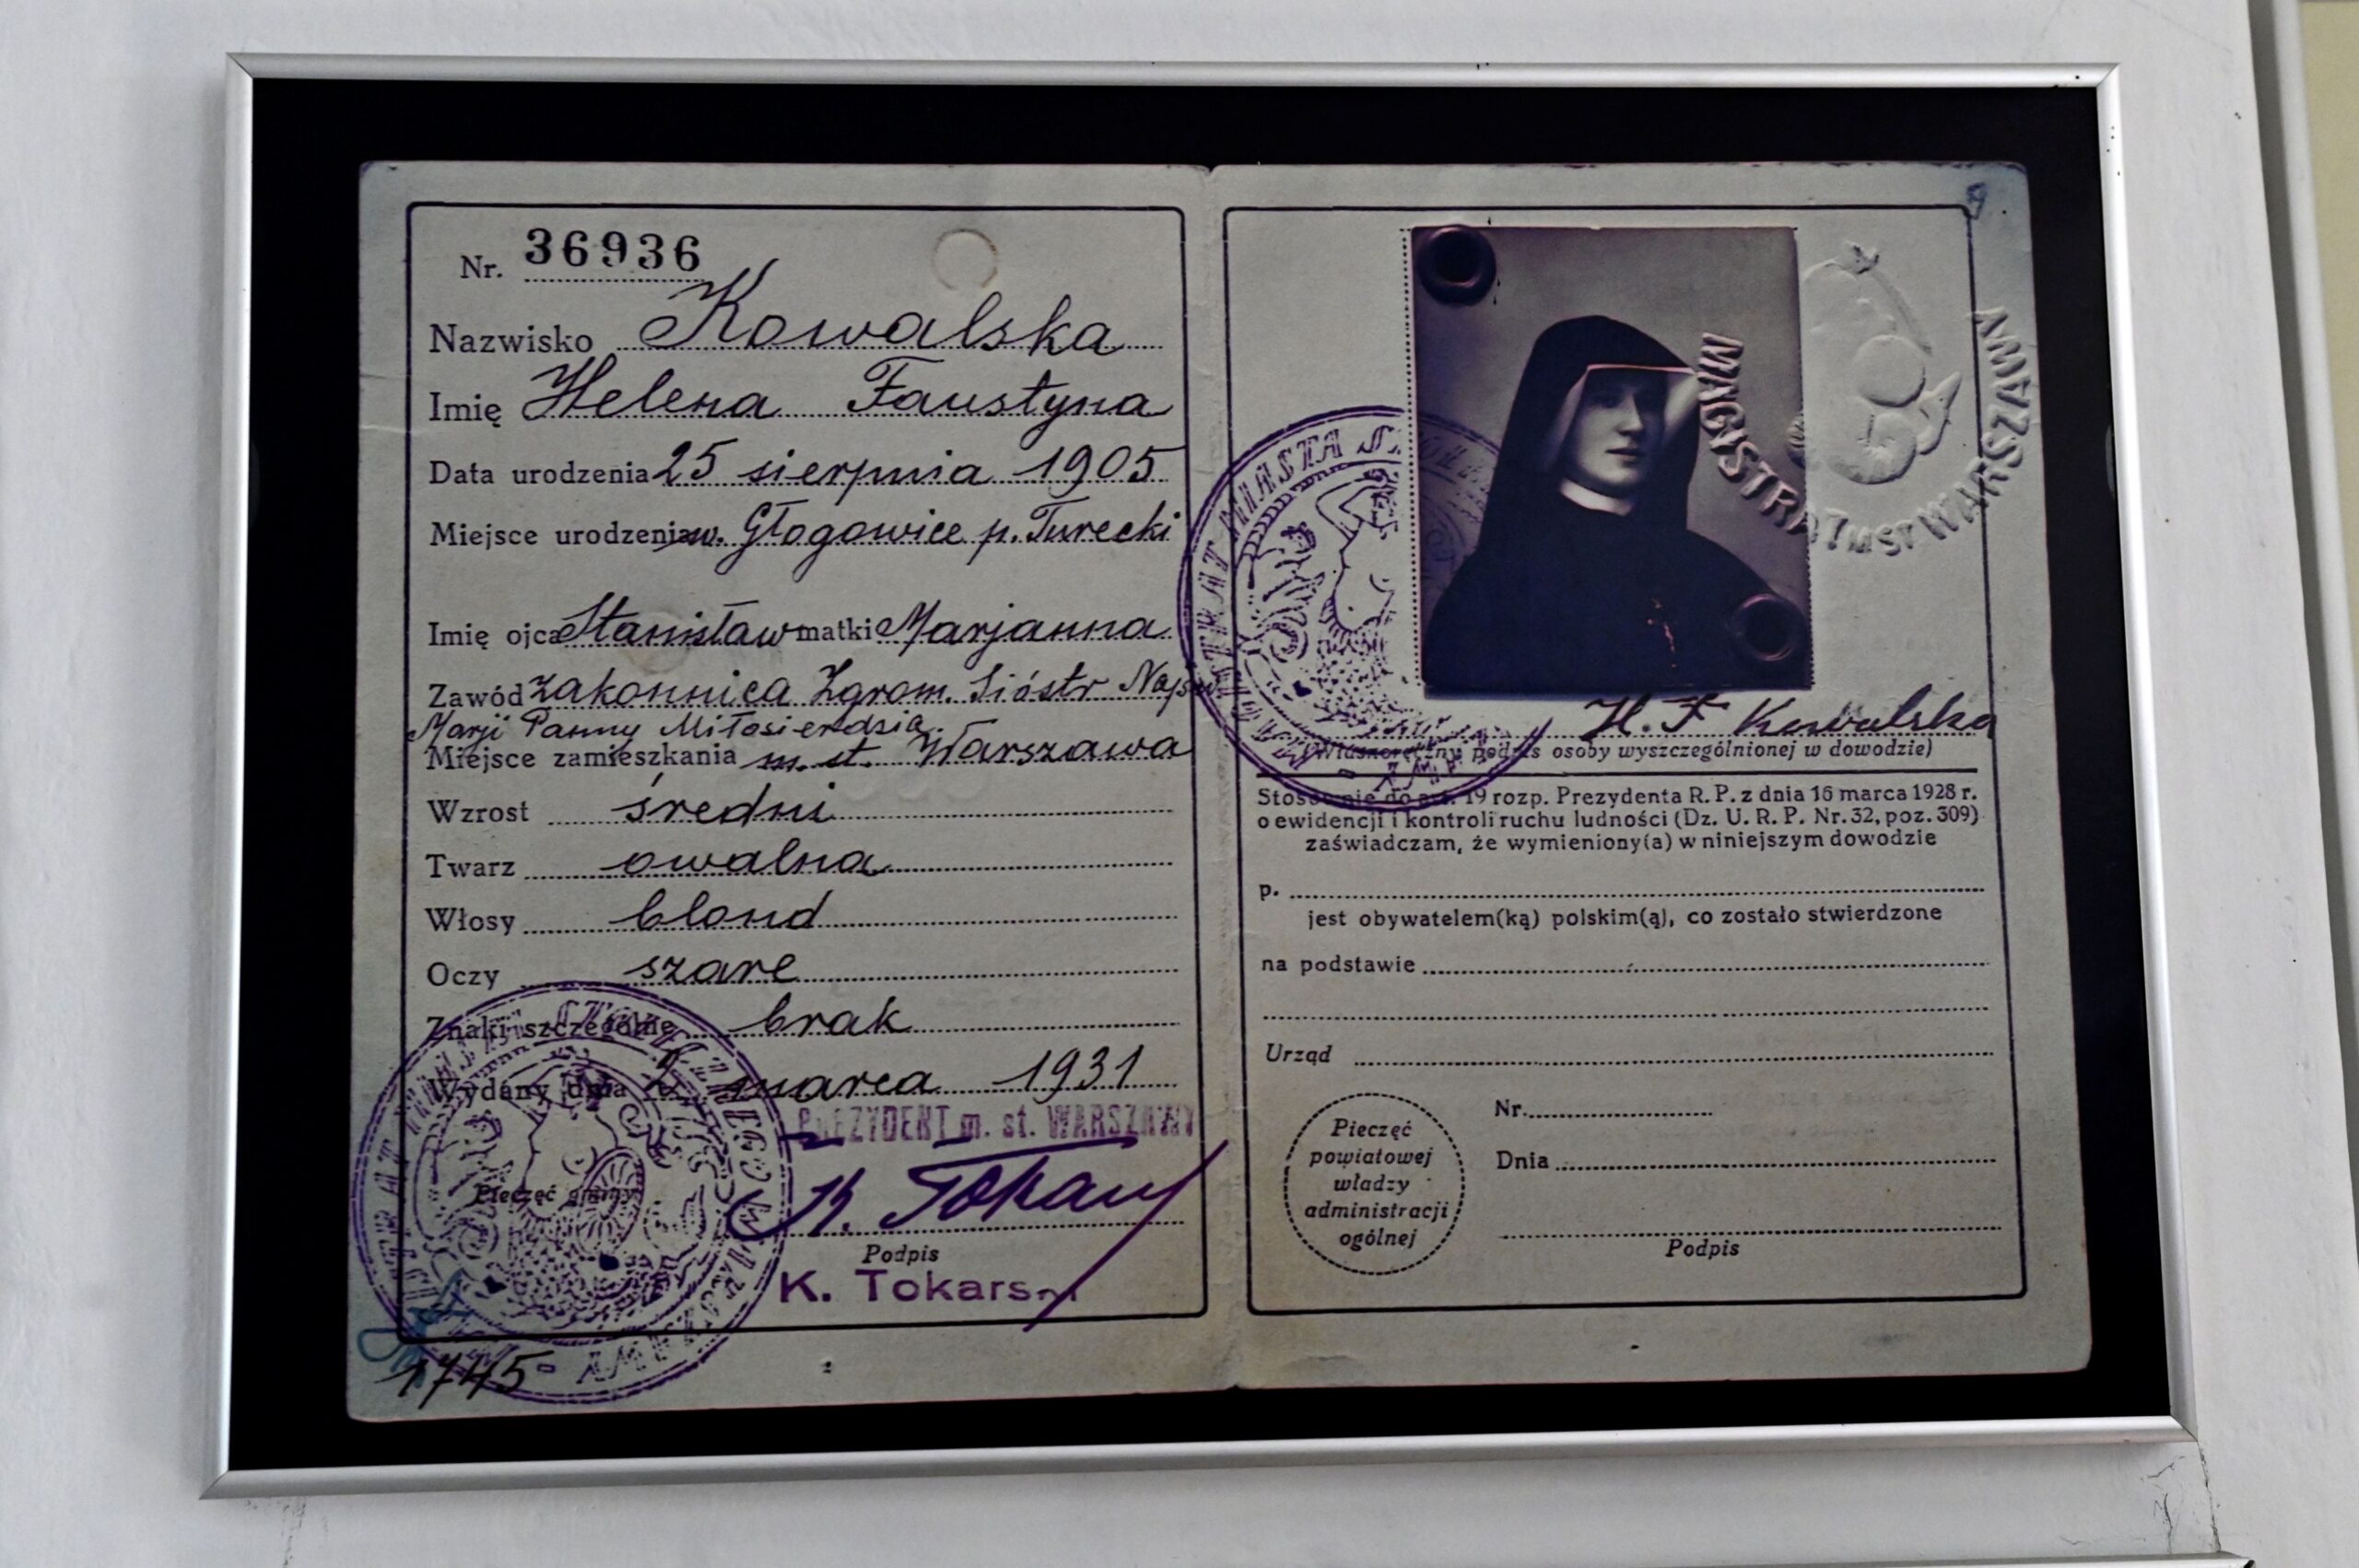 Nr. 36936
Nazwisko Kowalska
Imię Helena Faustyna
Data urodzenia 25 sierpnia 1905
Miejsce urodzenia w. Głogowice p. Turecki
Imię ojca Stanisław matki Marjanna
Zawód zakonnica Zgrom. Sióstr Najśw
Marji Panny Miłosierdzia
Miejsce zamieszkania m. st. Warszawa
Wzrost średni
Twarz owalna
Włosy blond
Oczy szare
Znaki szczególne brak
Wydany dnia 2 marca 1931
PREZYDENT m. st. WARSZAWY
Pieczęć gminy
K. Tokarski
Podpis
K. Tokars
1745
MAGISTRAT M ST WARSZAWY
MAGISTRAT MIASTA
H. F Kowalska
(Własnoręczny podpis osoby wyszczególnionej w dowodzie)
Stosownie do art. 19 rozp. Prezydenta R. P. z dnia 16 marca 1928 r.
o ewidencji i kontroli ruchu ludności (Dz. U. R. P. Nr. 32, poz. 309)
zaświadczam, że wymieniony(a) w niniejszym dowodzie
p.
jest obywatelem(ką) polskim(ą), co zostało stwierdzone
na podstawie
Urząd
Pieczęć
powiatowej
władzy
administracji
ogólnej
Nr.
Dnia
Podpis